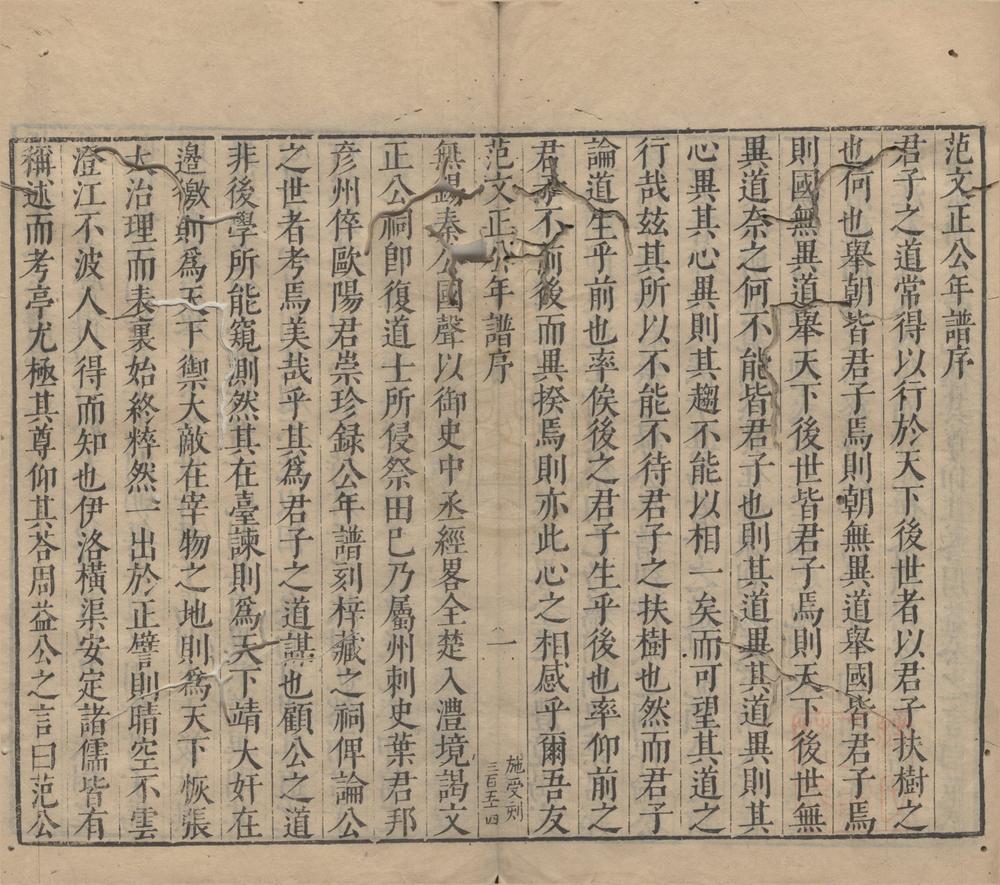 范文正公年譜序
君子之道常得以行於天下後世者以君子扶樹之
也何也舉朝皆君子焉則朝無異道舉國皆君子焉
則國無異道舉天下後世皆君子焉則天下後世無
異道奈之何不能皆君子也則其道異其道異則其
心異其心異則其趨不能以相一矣而可望其道之
行哉玆其所以不能不待君子之扶樹也然而君子
論道生乎前也率俟後之君子生乎後也率仰前之
君子不前後而異揆焉則亦此心之相感乎爾吾友
范文正公年譜序
一
施受刻
三百五十四
無錫秦公國聲以御史中丞經畧全楚入澧境謁文
正公祠卽復道士所侵祭田巳乃屬州刺史葉君邦
彦州倅歐陽君崇珍録公年譜刻梓藏之祠俾論公
之世者考焉美哉乎其爲君子之道謀也顧公之道
非後學所能窺測然其在臺諫則爲天下靖大奸在
邊徼則爲天下禦大敵在宰物之地則爲天下恢張
大治理而表裏始終粹然一出於正譬則晴空不雲
澄江不波人人得而知也伊洛橫渠安定諸儒皆有
稱述而考亭尤極其尊仰其荅周益公之言曰范公